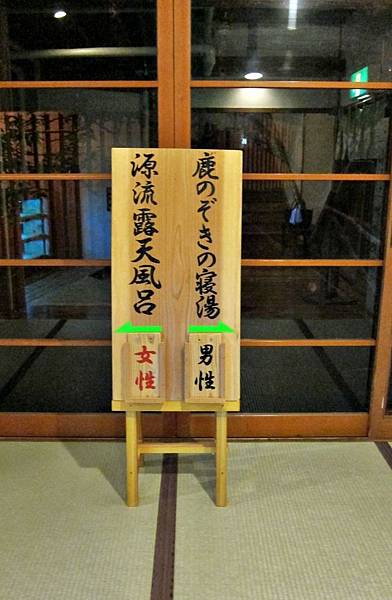 鹿のぞきの寝湯
男性
源流露天風呂
女性